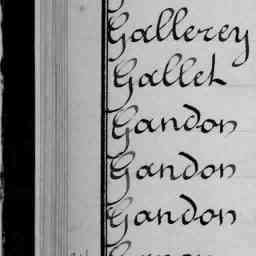 Gallerey
Gallet
Gandon
Gandon
Gandon